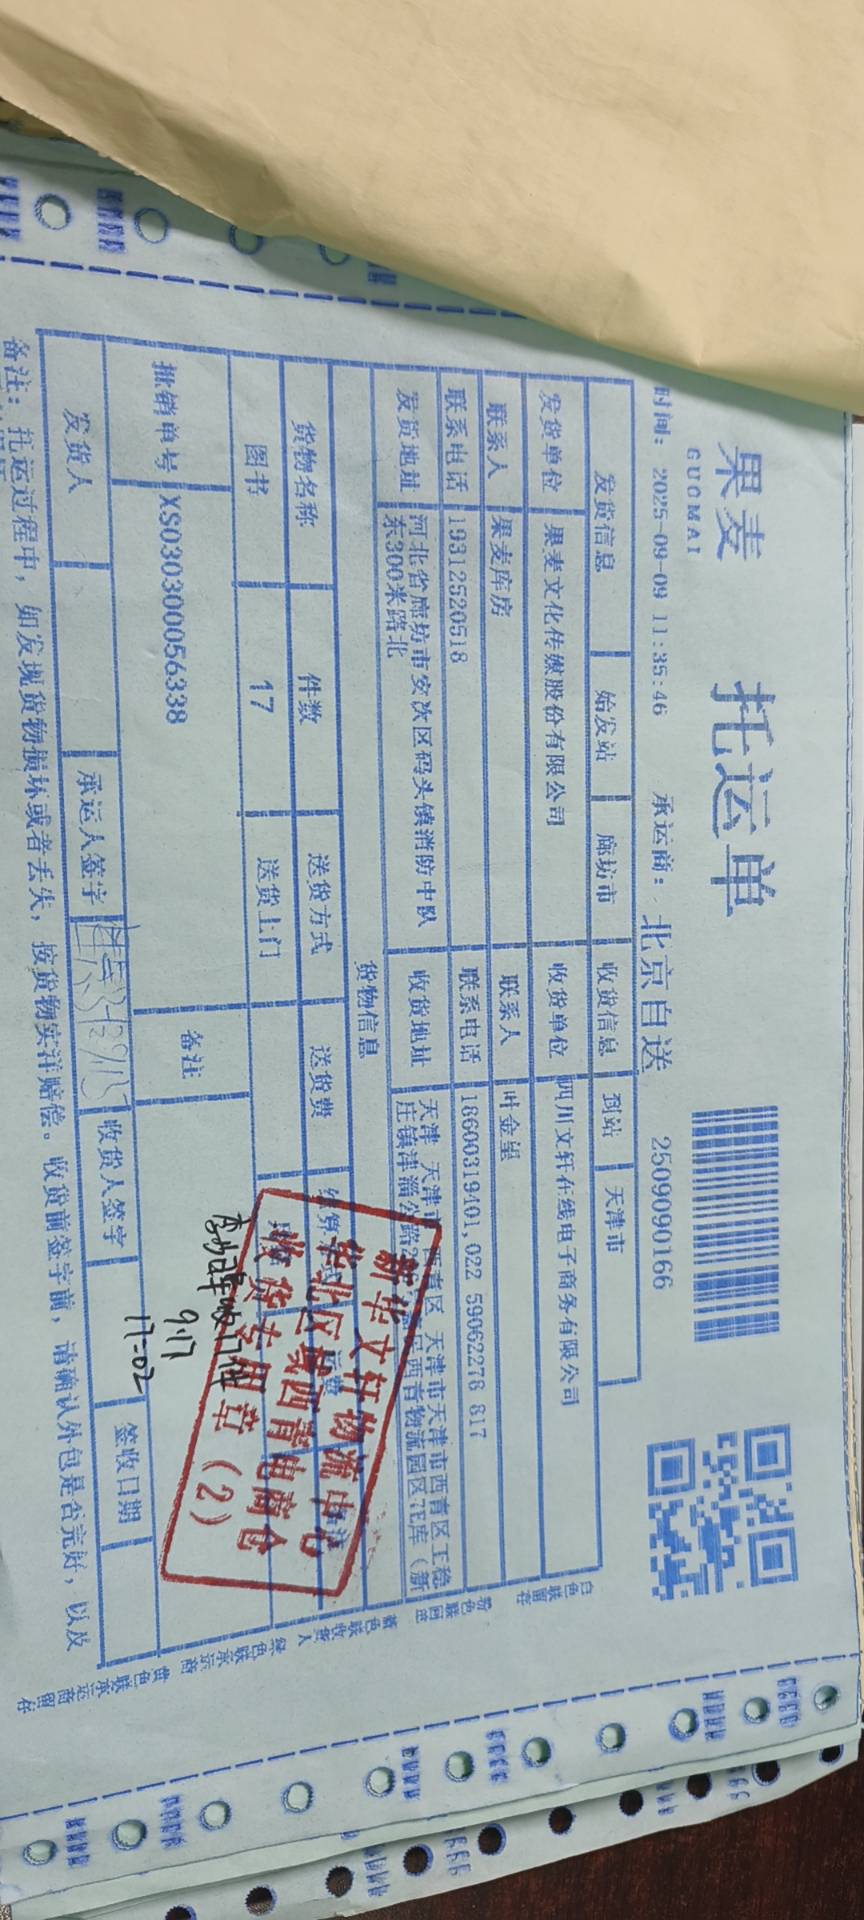 果麦
GUOMAI
托运单
2509090166
时间: 2025-09-09 11:35:46 承运商: 北京自送
发货信息 始发站 廊坊市 收货信息 到站 天津市
发货单位 果麦文化传媒股份有限公司 收货单位 四川文轩在线电子商务有限公司
联系人 果麦库房 联系人 叶金望
联系电话 19312520518 联系电话 18600319401,022 59062278 817
发货地址 河北省廊坊市安次区码头镇消防中队东300米路北 收货地址 天津 天津市 西青区 天津市天津市西青区王稳庄镇津淄公路 西青物流园区7E库（新
货物信息
货物名称 件数 送货方式 送货费
图书 17 送货上门
批销单号 XS030300056338 备注
收17件
9.17
17-02
新华文轩物流中心
华北区域西青电商仓
收货专用章（2）
发货人 承运人签字 收货人签字 签收日期
备注: 托运过程中，如发现货物损坏或者丢失，按货物实洋赔偿。收货前签字前，请确认外包是否完好，以及
白色联留存
粉色联回签
蓝色联收货人
绿色联承运商
黄色联承运商留存